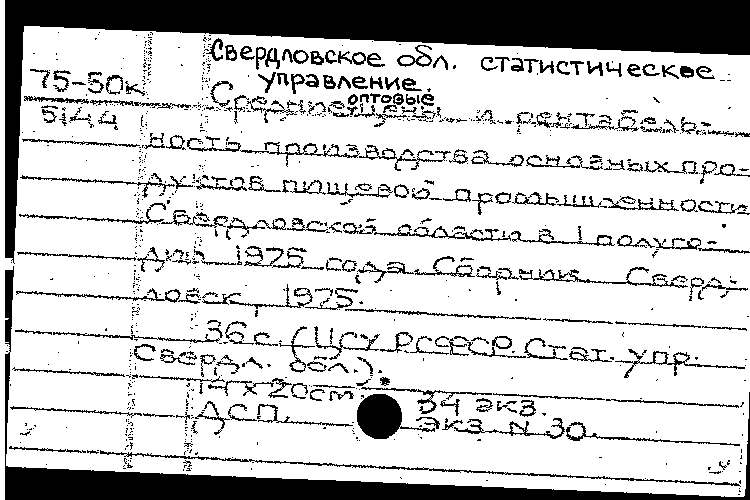 Свердловское обл. статистическое
управление.
75-50к
оптовые
Средние цены и рентабель-
5144
ность производства основных про-
дуктов пищевой промышленности
Свердловской области в I полуго-
дии 1975 года. Сборник. Сверд-
ловск, 1975.
36 с. (ЦСУ РСФСР. Стат. упр.
Свердл. обл.).
14 х 20 см. 34 экз.
ДСП. экз. N 30.
у у